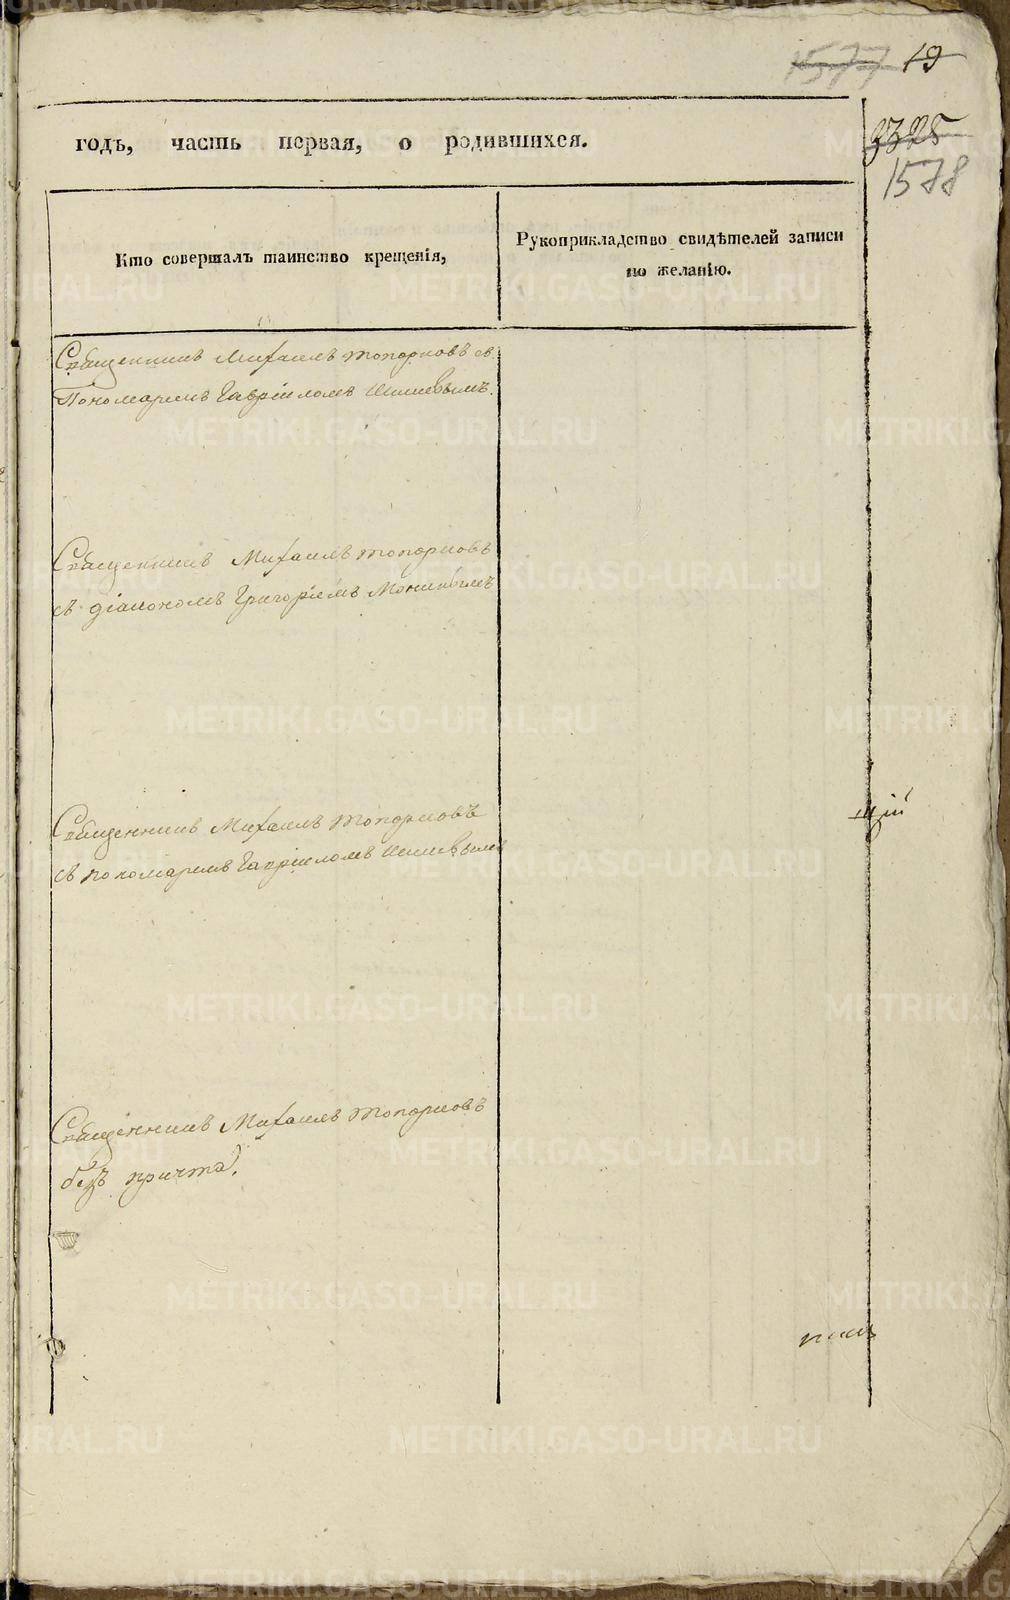 1577 19
годъ, часть первая, о родившихся.
3325
1578
Кто совершалъ таинство крещенія,
Рукоприкладство свидѣтелей записи
по желанію.
Священникъ Михаилъ Топорковъ съ
Пономаремъ Гавріиломъ
Священникъ Михаилъ Топорковъ
съ діакономъ Григоріемъ
Священникъ Михаилъ Топорковъ
съ пономаремъ Гавріиломъ
щій
Священникъ Михаилъ Топорковъ
безъ причта.
METRIKI.GASO-URAL.RU